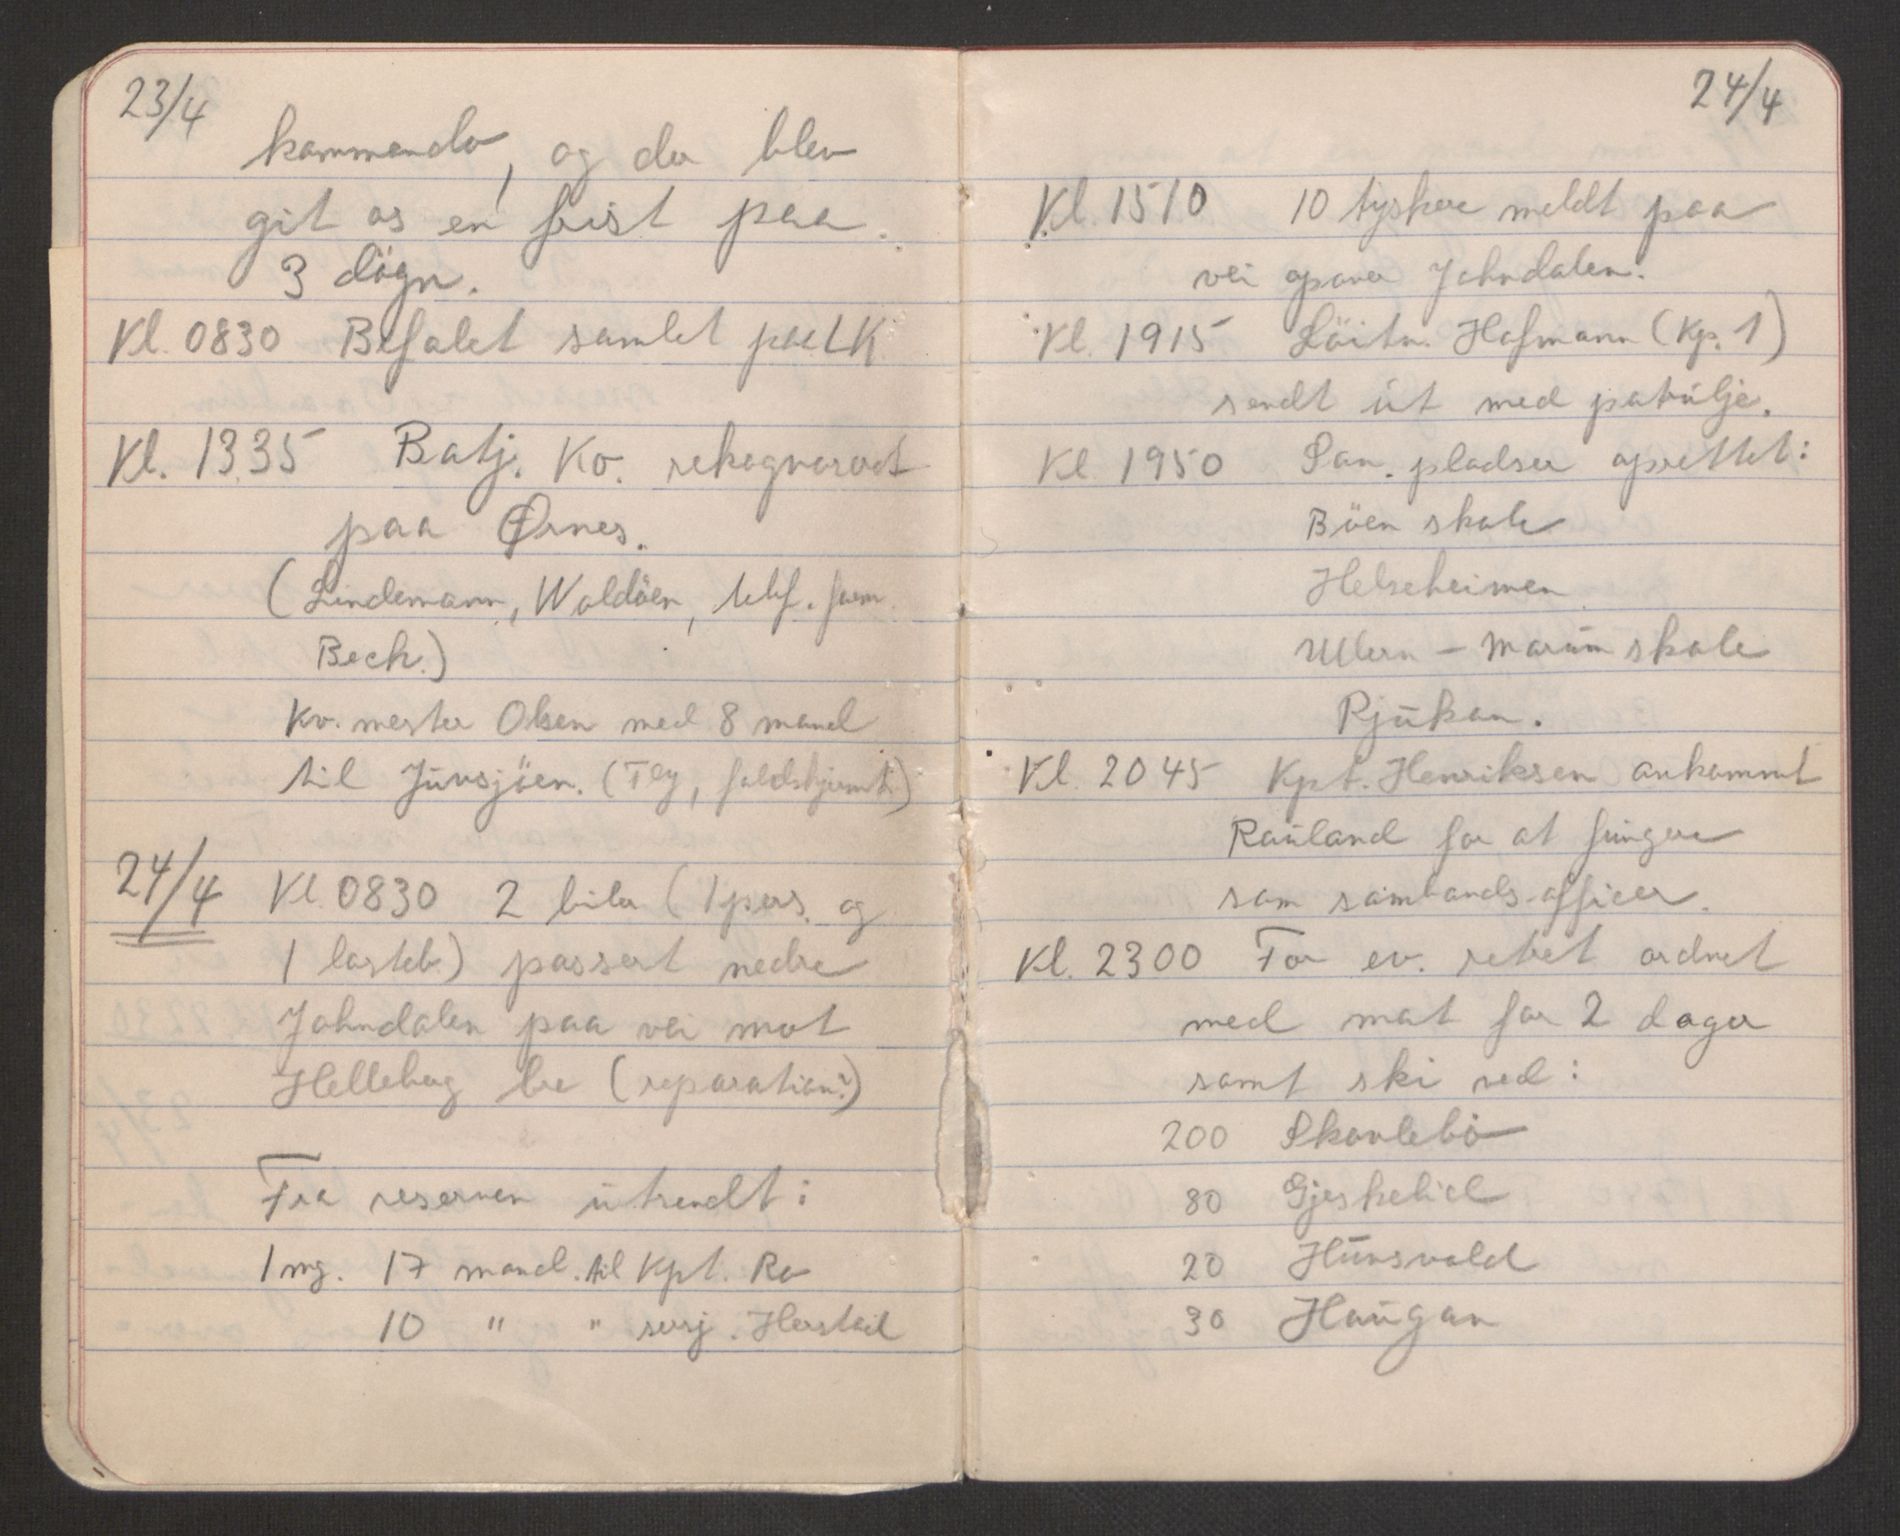 23/4
kommando, og der blev
git os en frist paa
3 døgn.
Kl. 0830 Befalet samlet paa LK
Kl. 1335 Batj. Ko. rekognoseret
paa Ørnes.
(Lindemann, Waldöen, telef. fuem.
Beck.)
Kv. mester Olsen med 8 mand
til Jŭvsjöen. (Fly, faldskjermt.)
24/4 Kl. 0830 2 biler (1 pers. og
1 lasteb) passert nedre
Johndalen paa vei mot
Helleberg bre (reparation?)
Fra reserven ŭtsendt:
1 mg. 17 mand. til Kpt. Ro
10 " " sersj. Herstad
24/4
Kl. 1510 10 tyskere meldt paa
vei opover Johndalen.
Kl. 1915 Löitn. Hofmann (Kp. 1)
sendt ŭt med patrŭlje.
Kl. 1950 San. pladser oprettet:
Böen skole
Helseheimen
Ullern - Marŭm skole
Rjŭkan.
Kl. 2045 Kpt. Henriksen ankommt
Raŭland for at fŭngere
som sambands-officer.
Kl. 2300 For ev. retret ordnet
med mat for 2 dager
samt ski ved:
200 Skavlebö
80 Gjeskelid
20 Hŭnsvald
30 Haŭgan